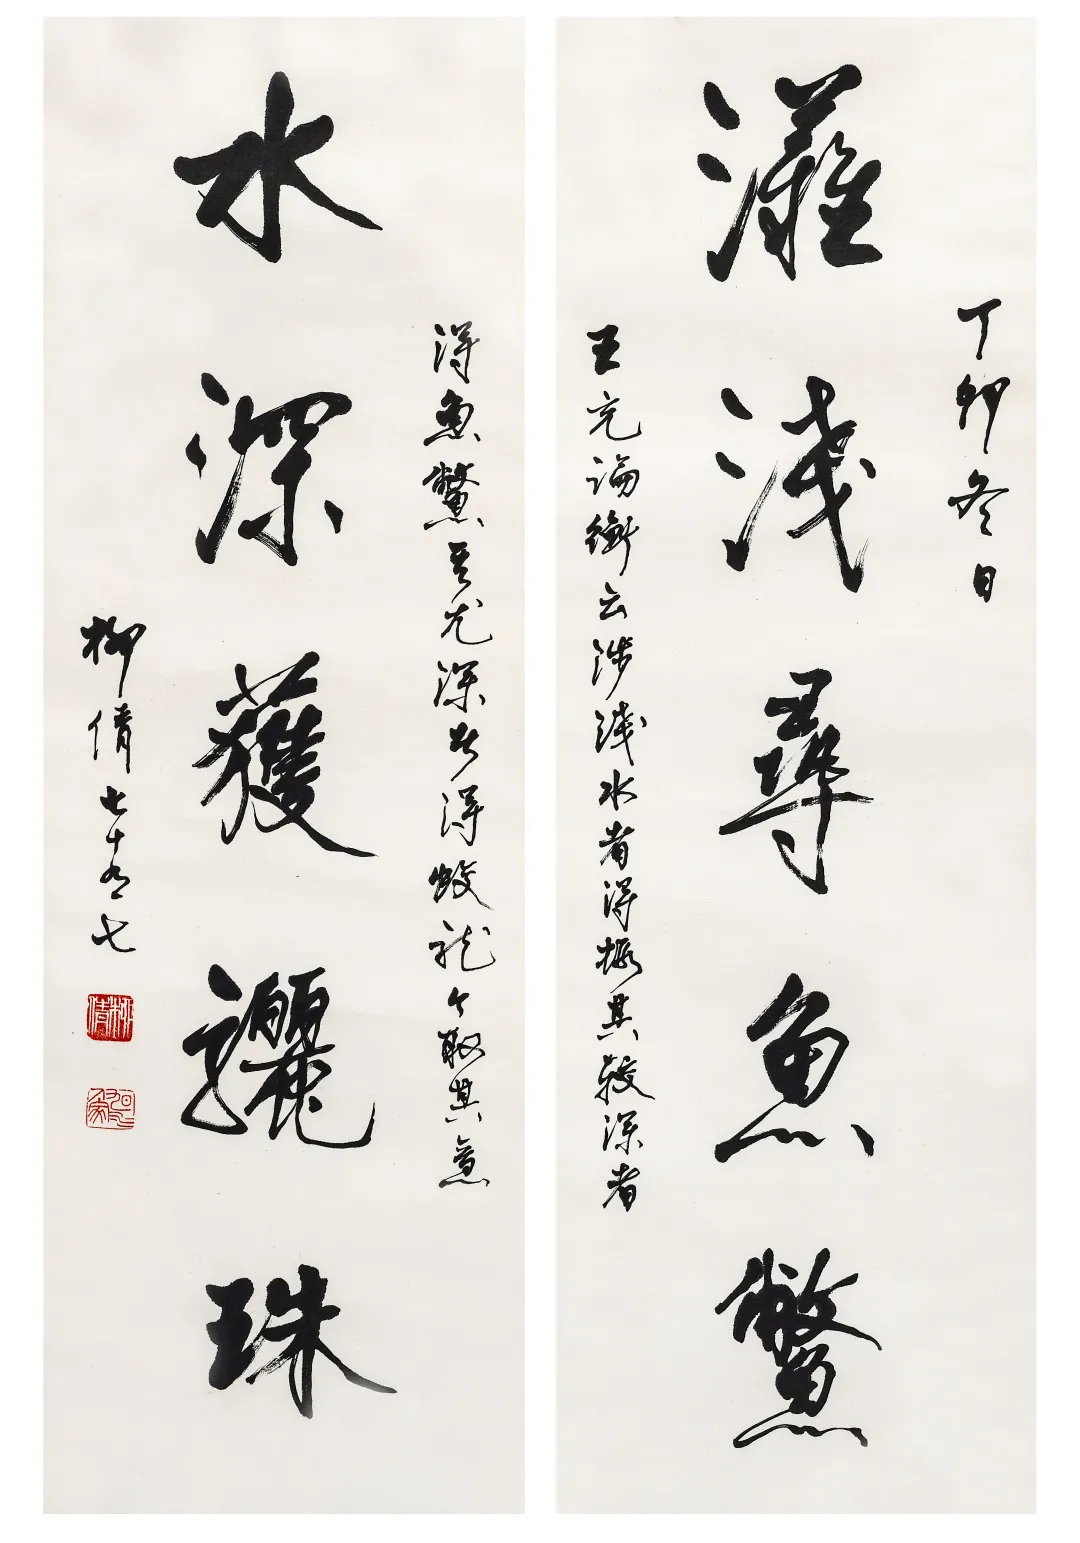 丁卯冬日
灘淺尋魚鱉
王充論衡云涉淺水者得蝦其較深者
得魚鱉其尤深者得蛟龍今取其意
水深獲驪珠
柳倩七十有七
柳倩